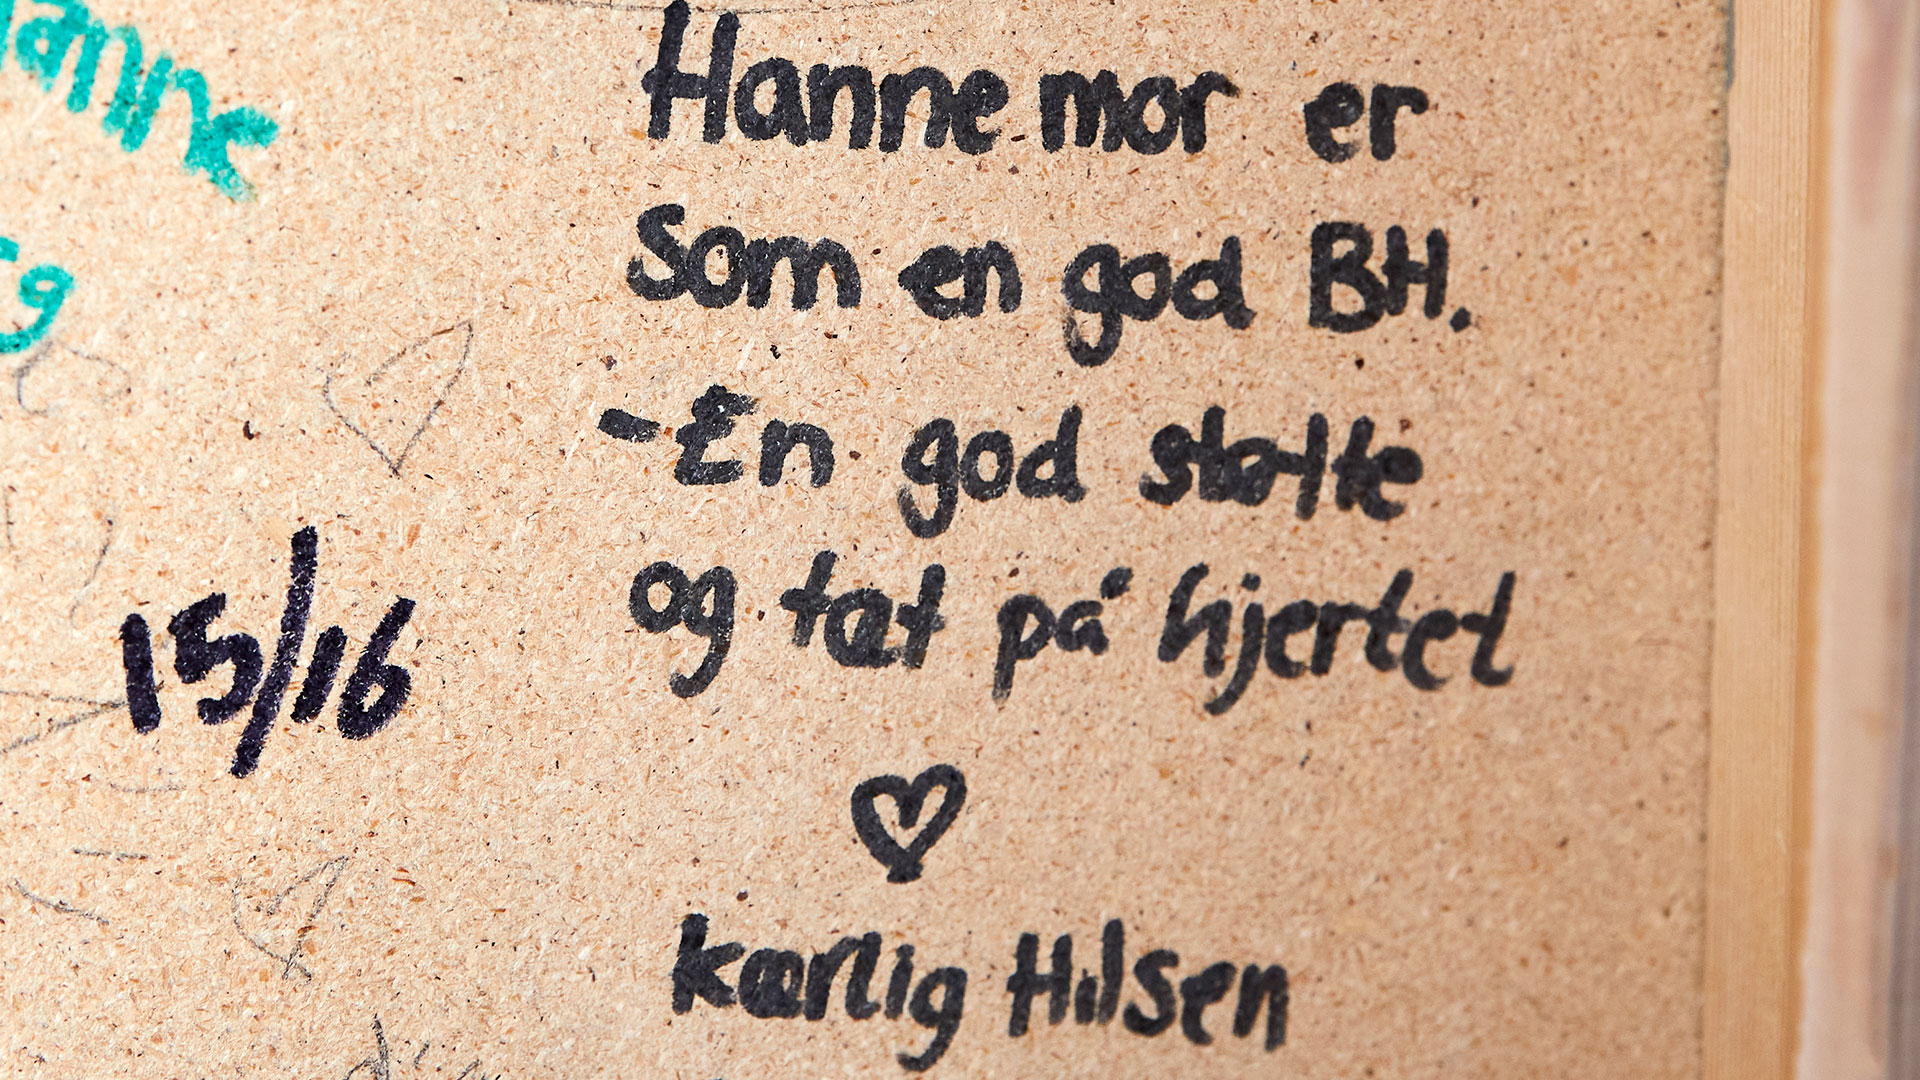 anne
g
Hanne mor er
som en god BH.
-En god støtte
og tæt på hjertet
15/16
Kærlig Hilsen